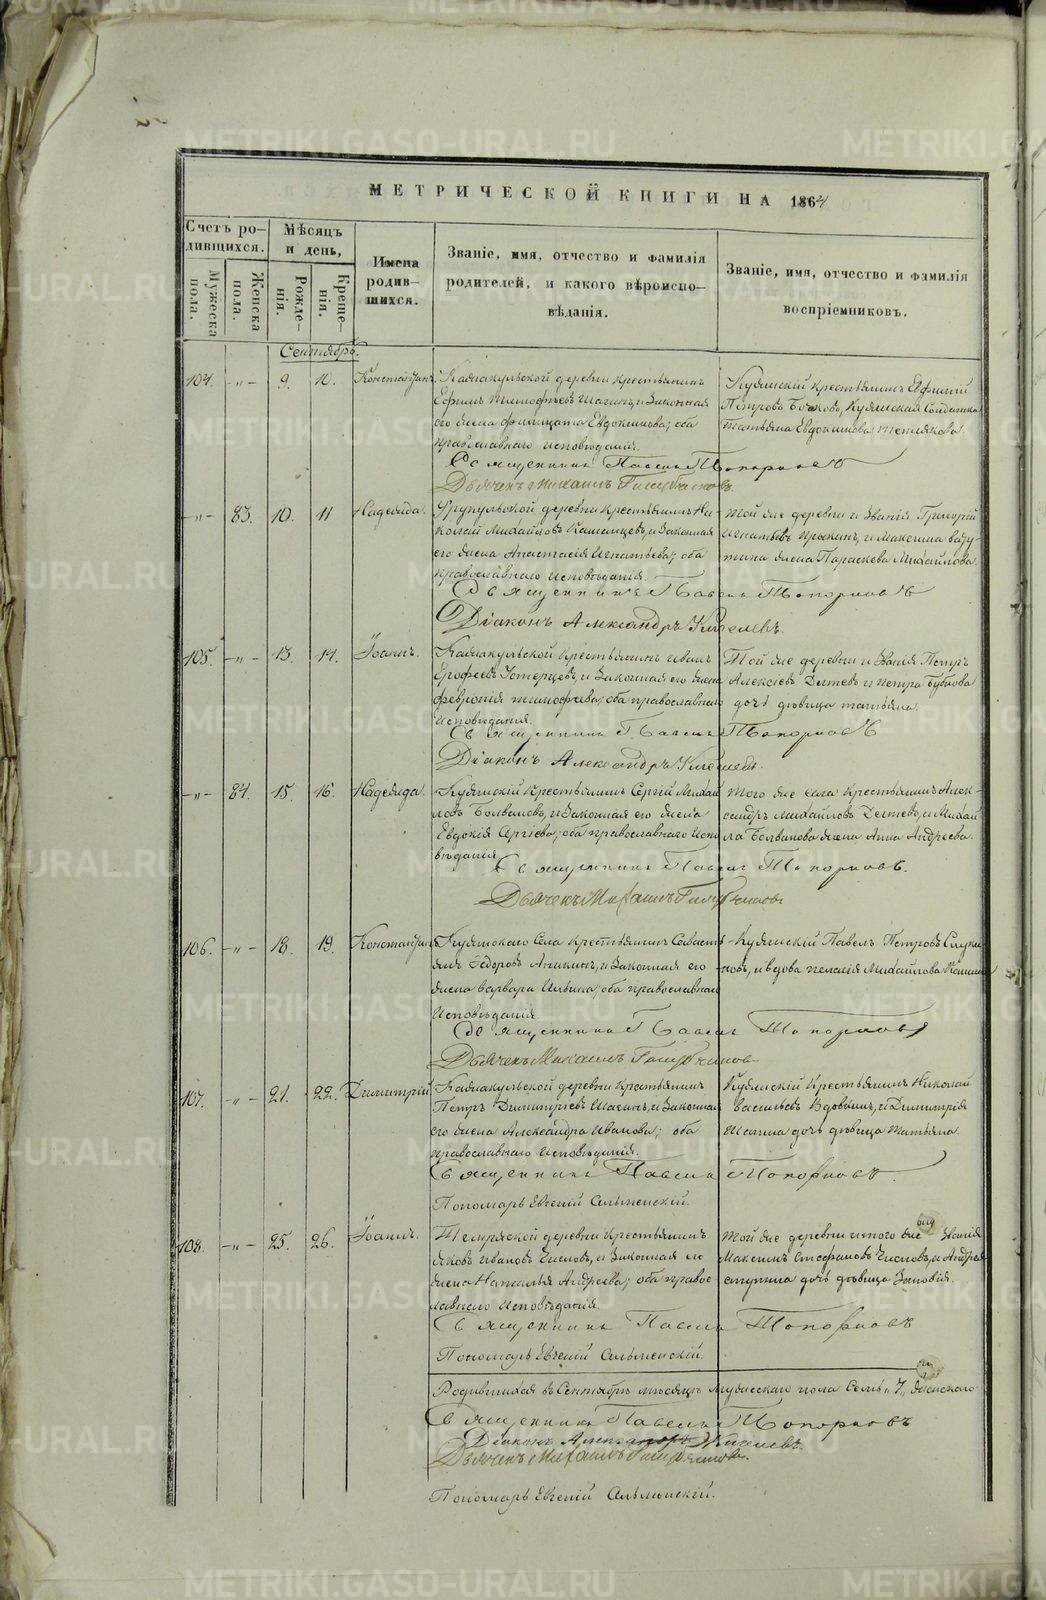 МЕТРИЧЕСКОЙ КНИГИ НА 1864
Счетъ ро-
дившихся.
Мужеска
пола.
Женска
пола.
Мѣсяцъ
и день,
Рожде-
нія.
Креще-
нія.
Имена
родив-
шихся.
Званіе, имя, отчество и фамилія
родителей, и какого вѣроиспо-
вѣданія.
Званіе, имя, отчество и фамилія
воспріемниковъ.
Сентябрь.
104. -„- 9. 10. Константинъ.
деревни крестьянинъ
Ефимъ Тимофѣевъ Шагинъ, и законная
его жена Филицата Евдокимова; оба
православнаго исповѣданія.
крестьянинъ Евфимій
Петровъ Солдатка
Татьяна Евдокимова
Священникъ Павелъ Топорковъ
Дьячекъ Михаилъ
-„- 83. 10. 11 Надежда.
деревни крестьянинъ Ни-
колай Михайловъ и законная
его жена Анастасія Игнатьева; оба
православнаго исповѣданія.
той же деревни и званія Григорій
Игнатьевъ и Максима
жена Параскева Михайлова
Священникъ Павелъ Топорковъ
Діаконъ Александръ Киселевъ.
105. -„- 13. 14. Іоаннъ.
крестьянинъ Иванъ
Ерофеевъ и законная его жена
Февронія Тимофеева; оба православнаго
исповѣданія.
Той же деревни и званія Петръ
Алексѣевъ Дегтевъ и Петра Бубнова
дочь дѣвица Татьяна.
Священникъ Павелъ Топорковъ
Діаконъ Александръ Киселевъ.
-„- 84. 15. 16. Надежда.
крестьянинъ Сергій Михай
ловъ Болвановъ, и законная его жена
Евдокія Сергіева; оба православнаго испо
вѣданія
того же села крестьянинъ Алек-
сандръ Михайловъ Дегтевъ, и Михай
ла Болванова жена Анна Андреева.
Священникъ Павелъ Топорковъ.
Дьячекъ Михаилъ
106. -„- 18. 19. Константинъ
села крестьянинъ Севасть
янъ Ѳедоровъ Аникинъ, и законная его
жена Варвара Ильина; оба православнаго
исповѣданія
Павелъ Петровъ
и вдова Пелагія Михайлова
Священникъ Павелъ Топорковъ
Дьячекъ Михаилъ
107. -„- 21. 22. Димитрій
деревни крестьянинъ
Петръ Димитріевъ Шагинъ, и законная
его жена Александра Иванова; оба
православнаго исповѣданія.
крестьянинъ Николай
Васильевъ Вдовинъ, и Димитрія
Шагина дочь дѣвица Татьяна.
Священникъ Павелъ Топорковъ.
Пономарь Евгеній Сельменскій.
108. -„- 25. 26. Іоаннъ.
деревни крестьянинъ
Яковъ Ивановъ и законная его
жена Наталья Андреева; оба право
славнаго исповѣданія.
той же деревни и того же званія
Максимъ Стефановъ и Андрея
дочь дѣвица Зиновія.
Священникъ Павелъ Топорковъ
Пономарь Евгеній Сельменскій.
Родившихся въ Сентябрѣ мѣсяцѣ мужескаго пола семь „7„ женскаго
Священникъ Павелъ Топорковъ
Діаконъ Александръ Киселевъ.
Дьячекъ Михаилъ
Пономарь Евгеній Сельменскій.
METRIKI.GASO-URAL.RU